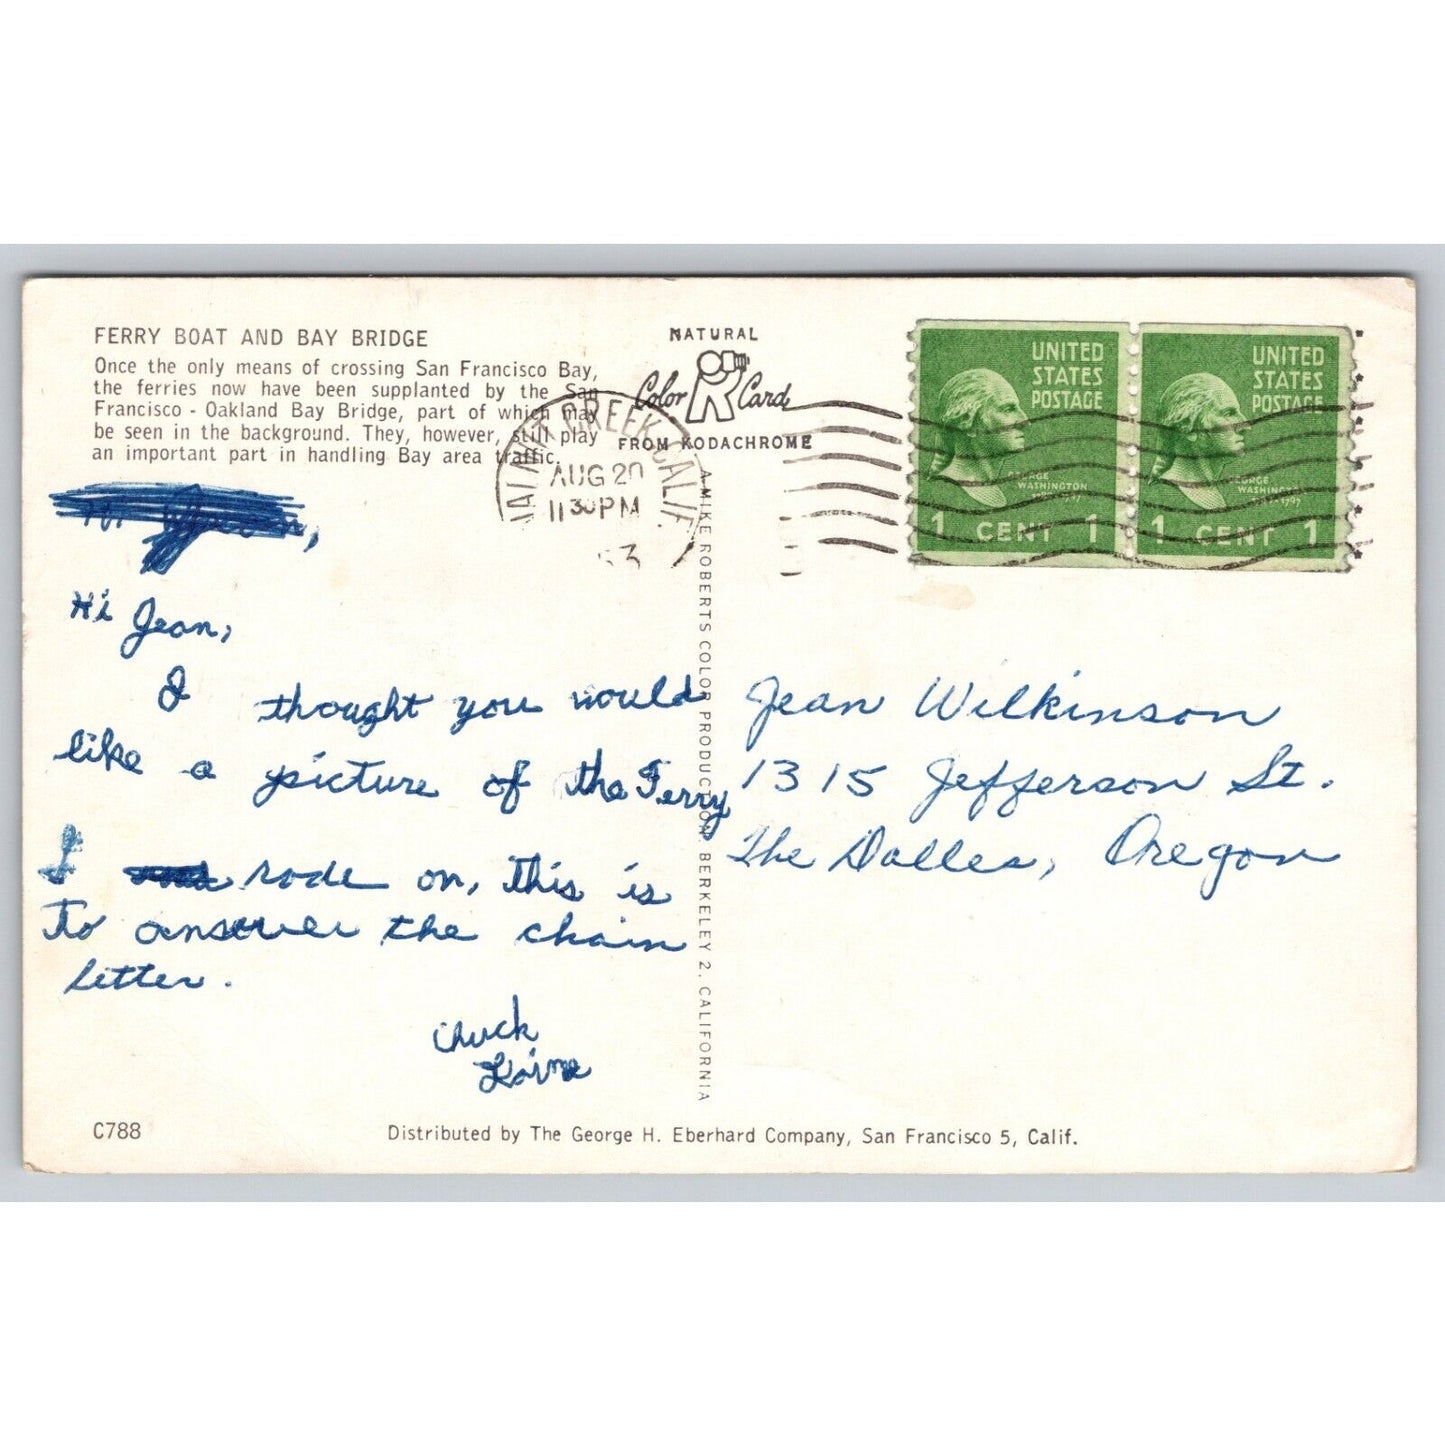 FERRY BOAT AND BAY BRIDGE
Once the only means of crossing San Francisco Bay,
the ferries now have been supplanted by the San
Francisco - Oakland Bay Bridge, part of which may
be seen in the background. They, however, still play
an important part in handling Bay area traffic.
NATURAL
Color Card
FROM KODACHROME
CREEK CALIF
AUG 20
11 30 PM
53
UNITED
STATES
POSTAGE
GEORGE
WASHINGTON
1 CENT 1
UNITED
STATES
POSTAGE
GEORGE
WASHINGTON
1 CENT 1
Hi Jean,
I thought you would
like a picture of the Ferry
I rode on, this is
To answer the chain
letter.
Chuck
A MIKE ROBERTS COLOR PRODUCTION BERKELEY 2, CALIFORNIA
Jean Wilkinson
1315 Jefferson St.
The Dalles, Oregon
C788
Distributed by The George H. Eberhard Company, San Francisco 5, Calif.